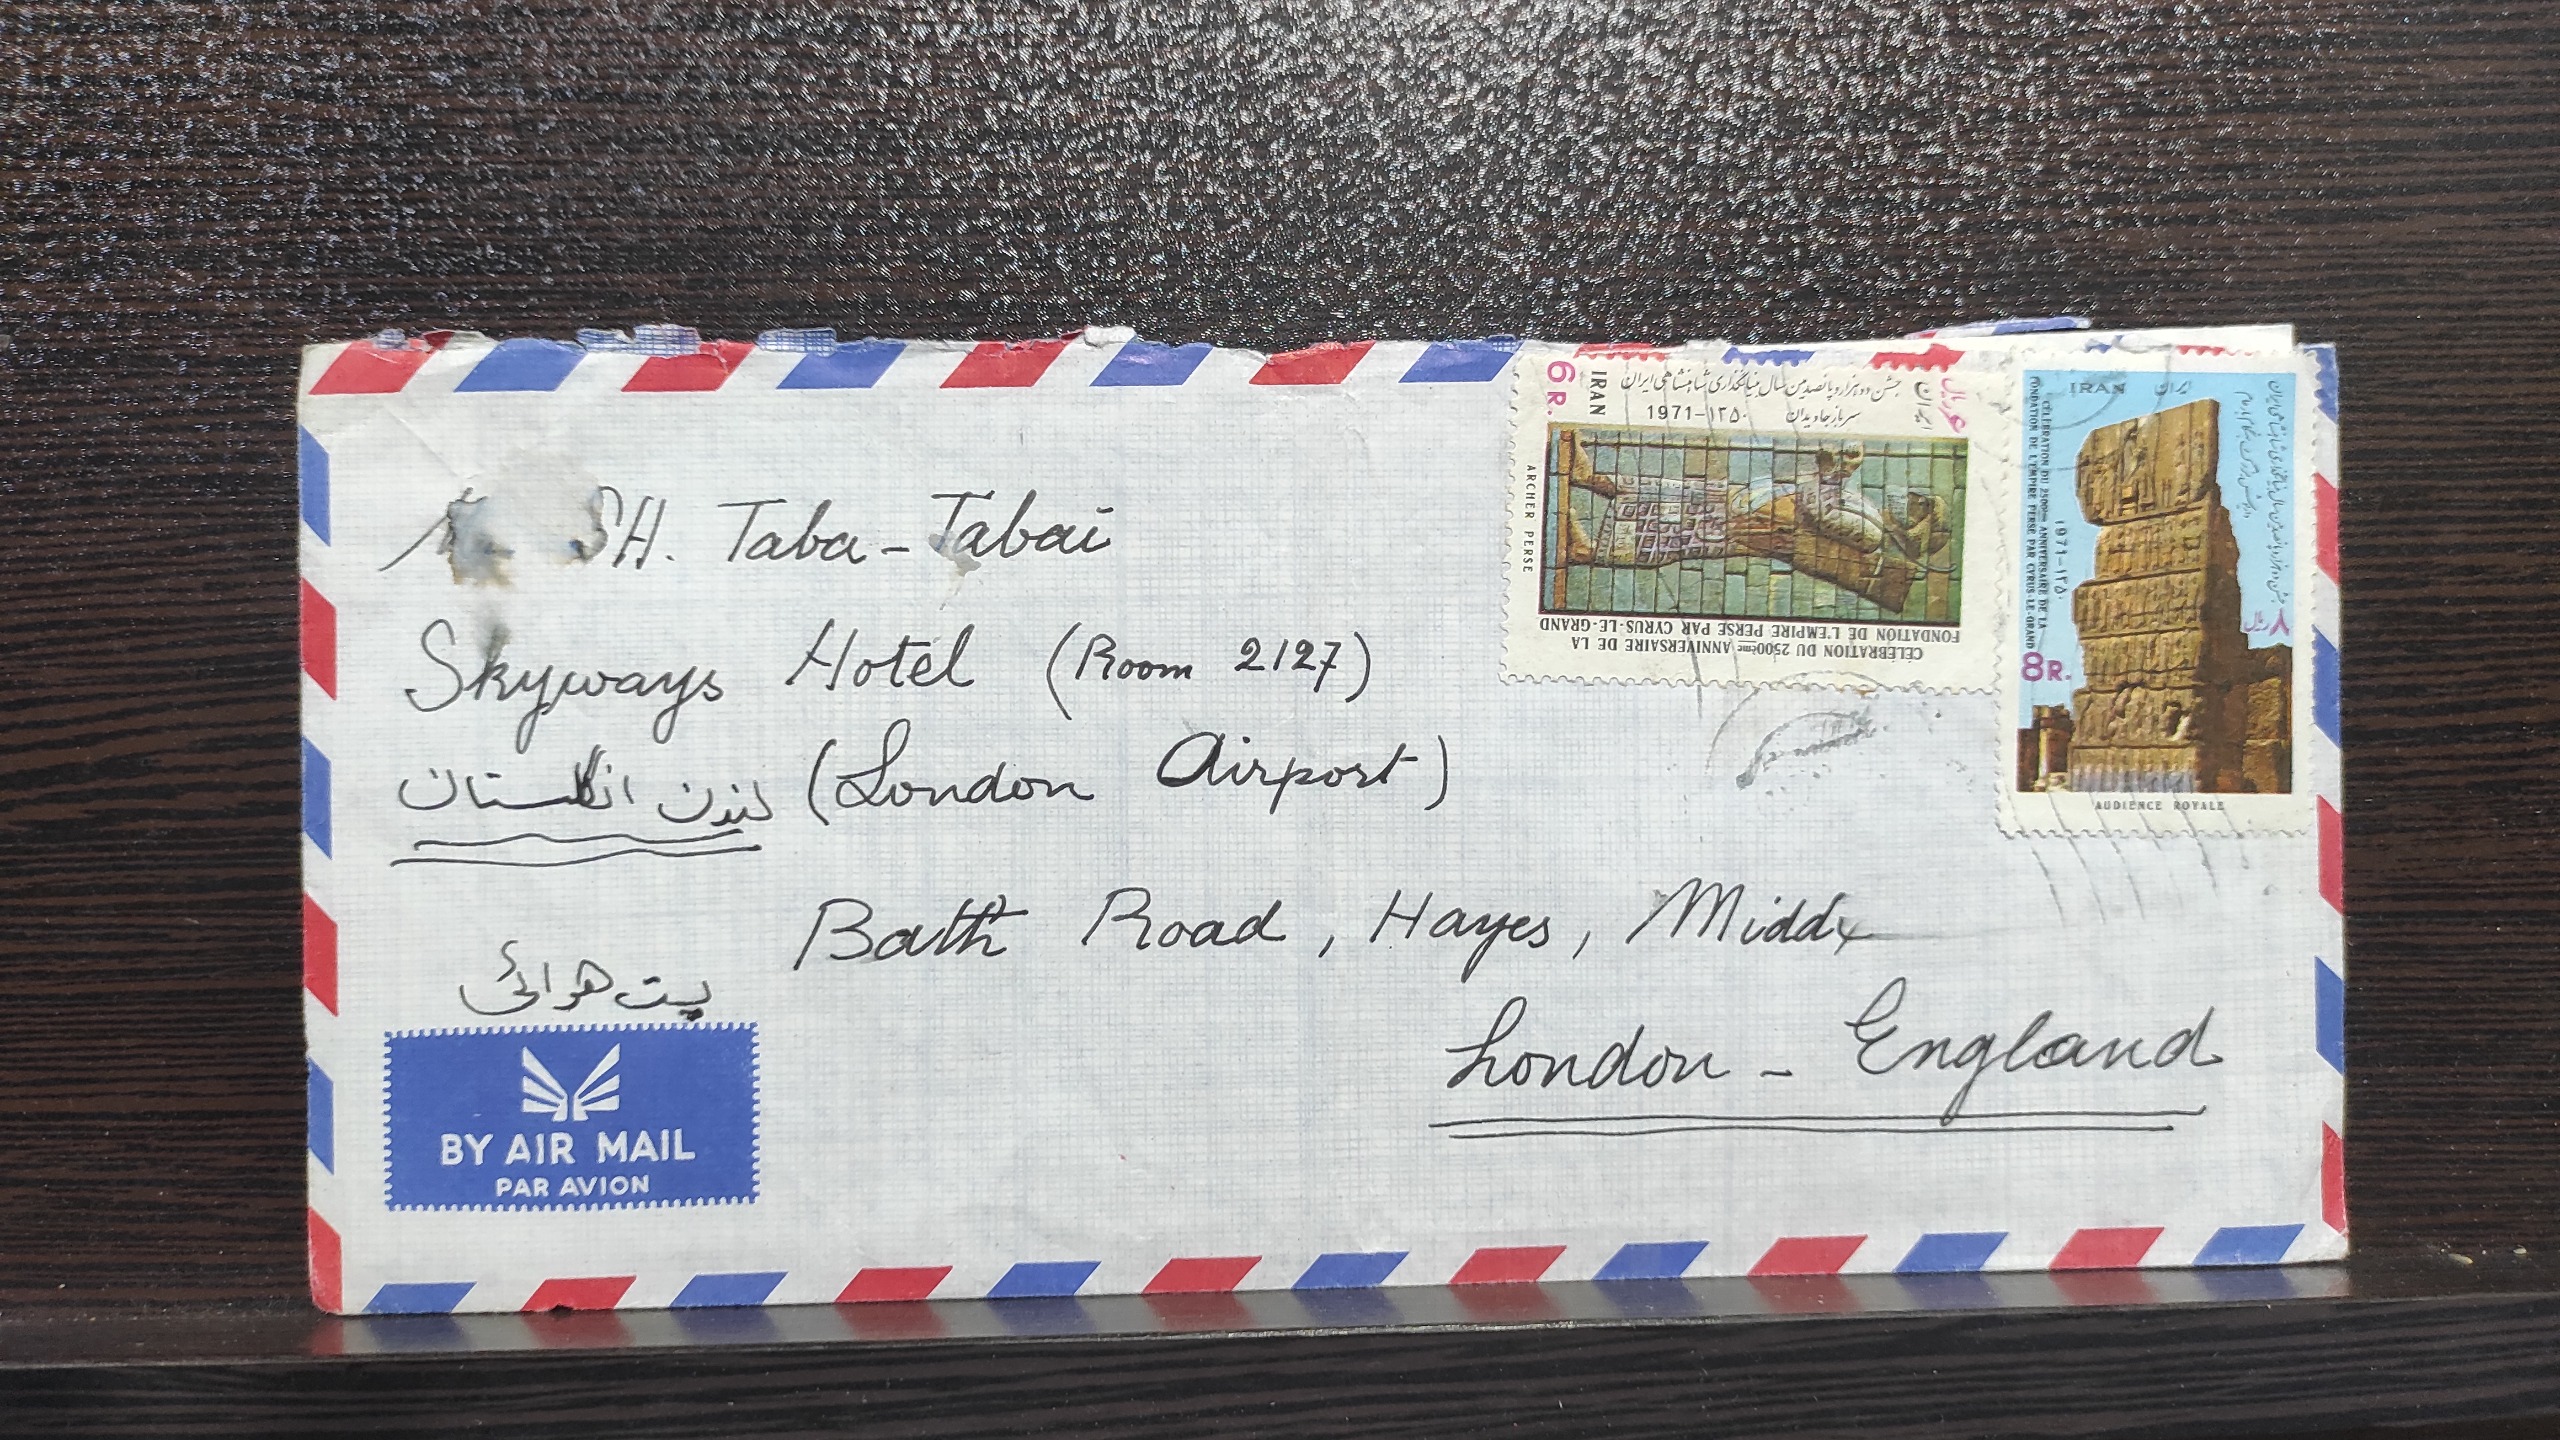 SH. Taba-Tabai
Skyways Hotel (Room 2127)
(London Airport)
لندن انگلستان
Bath Road, Hayes, Middx
London - England
پست هوائی
BY AIR MAIL
PAR AVION
6 R.
IRAN
ایران
جشن دو هزار و پانصدمین سال بنیانگذاری شاهنشاهی ایران
1971-۱۳۵۰ سرباز جاویدان
ARCHER PERSE
CÉLÉBRATION DU 2500ème ANNIVERSAIRE DE LA
FONDATION DE L'EMPIRE PERSE PAR CYRUS-LE-GRAND
IRAN ایران
CÉLÉBRATION DU 2500ème ANNIVERSAIRE DE LA
FONDATION DE L'EMPIRE PERSE PAR CYRUS-LE-GRAND
1971-۱۳۵۰
۸ ریال
8R.
AUDIENCE ROYALE